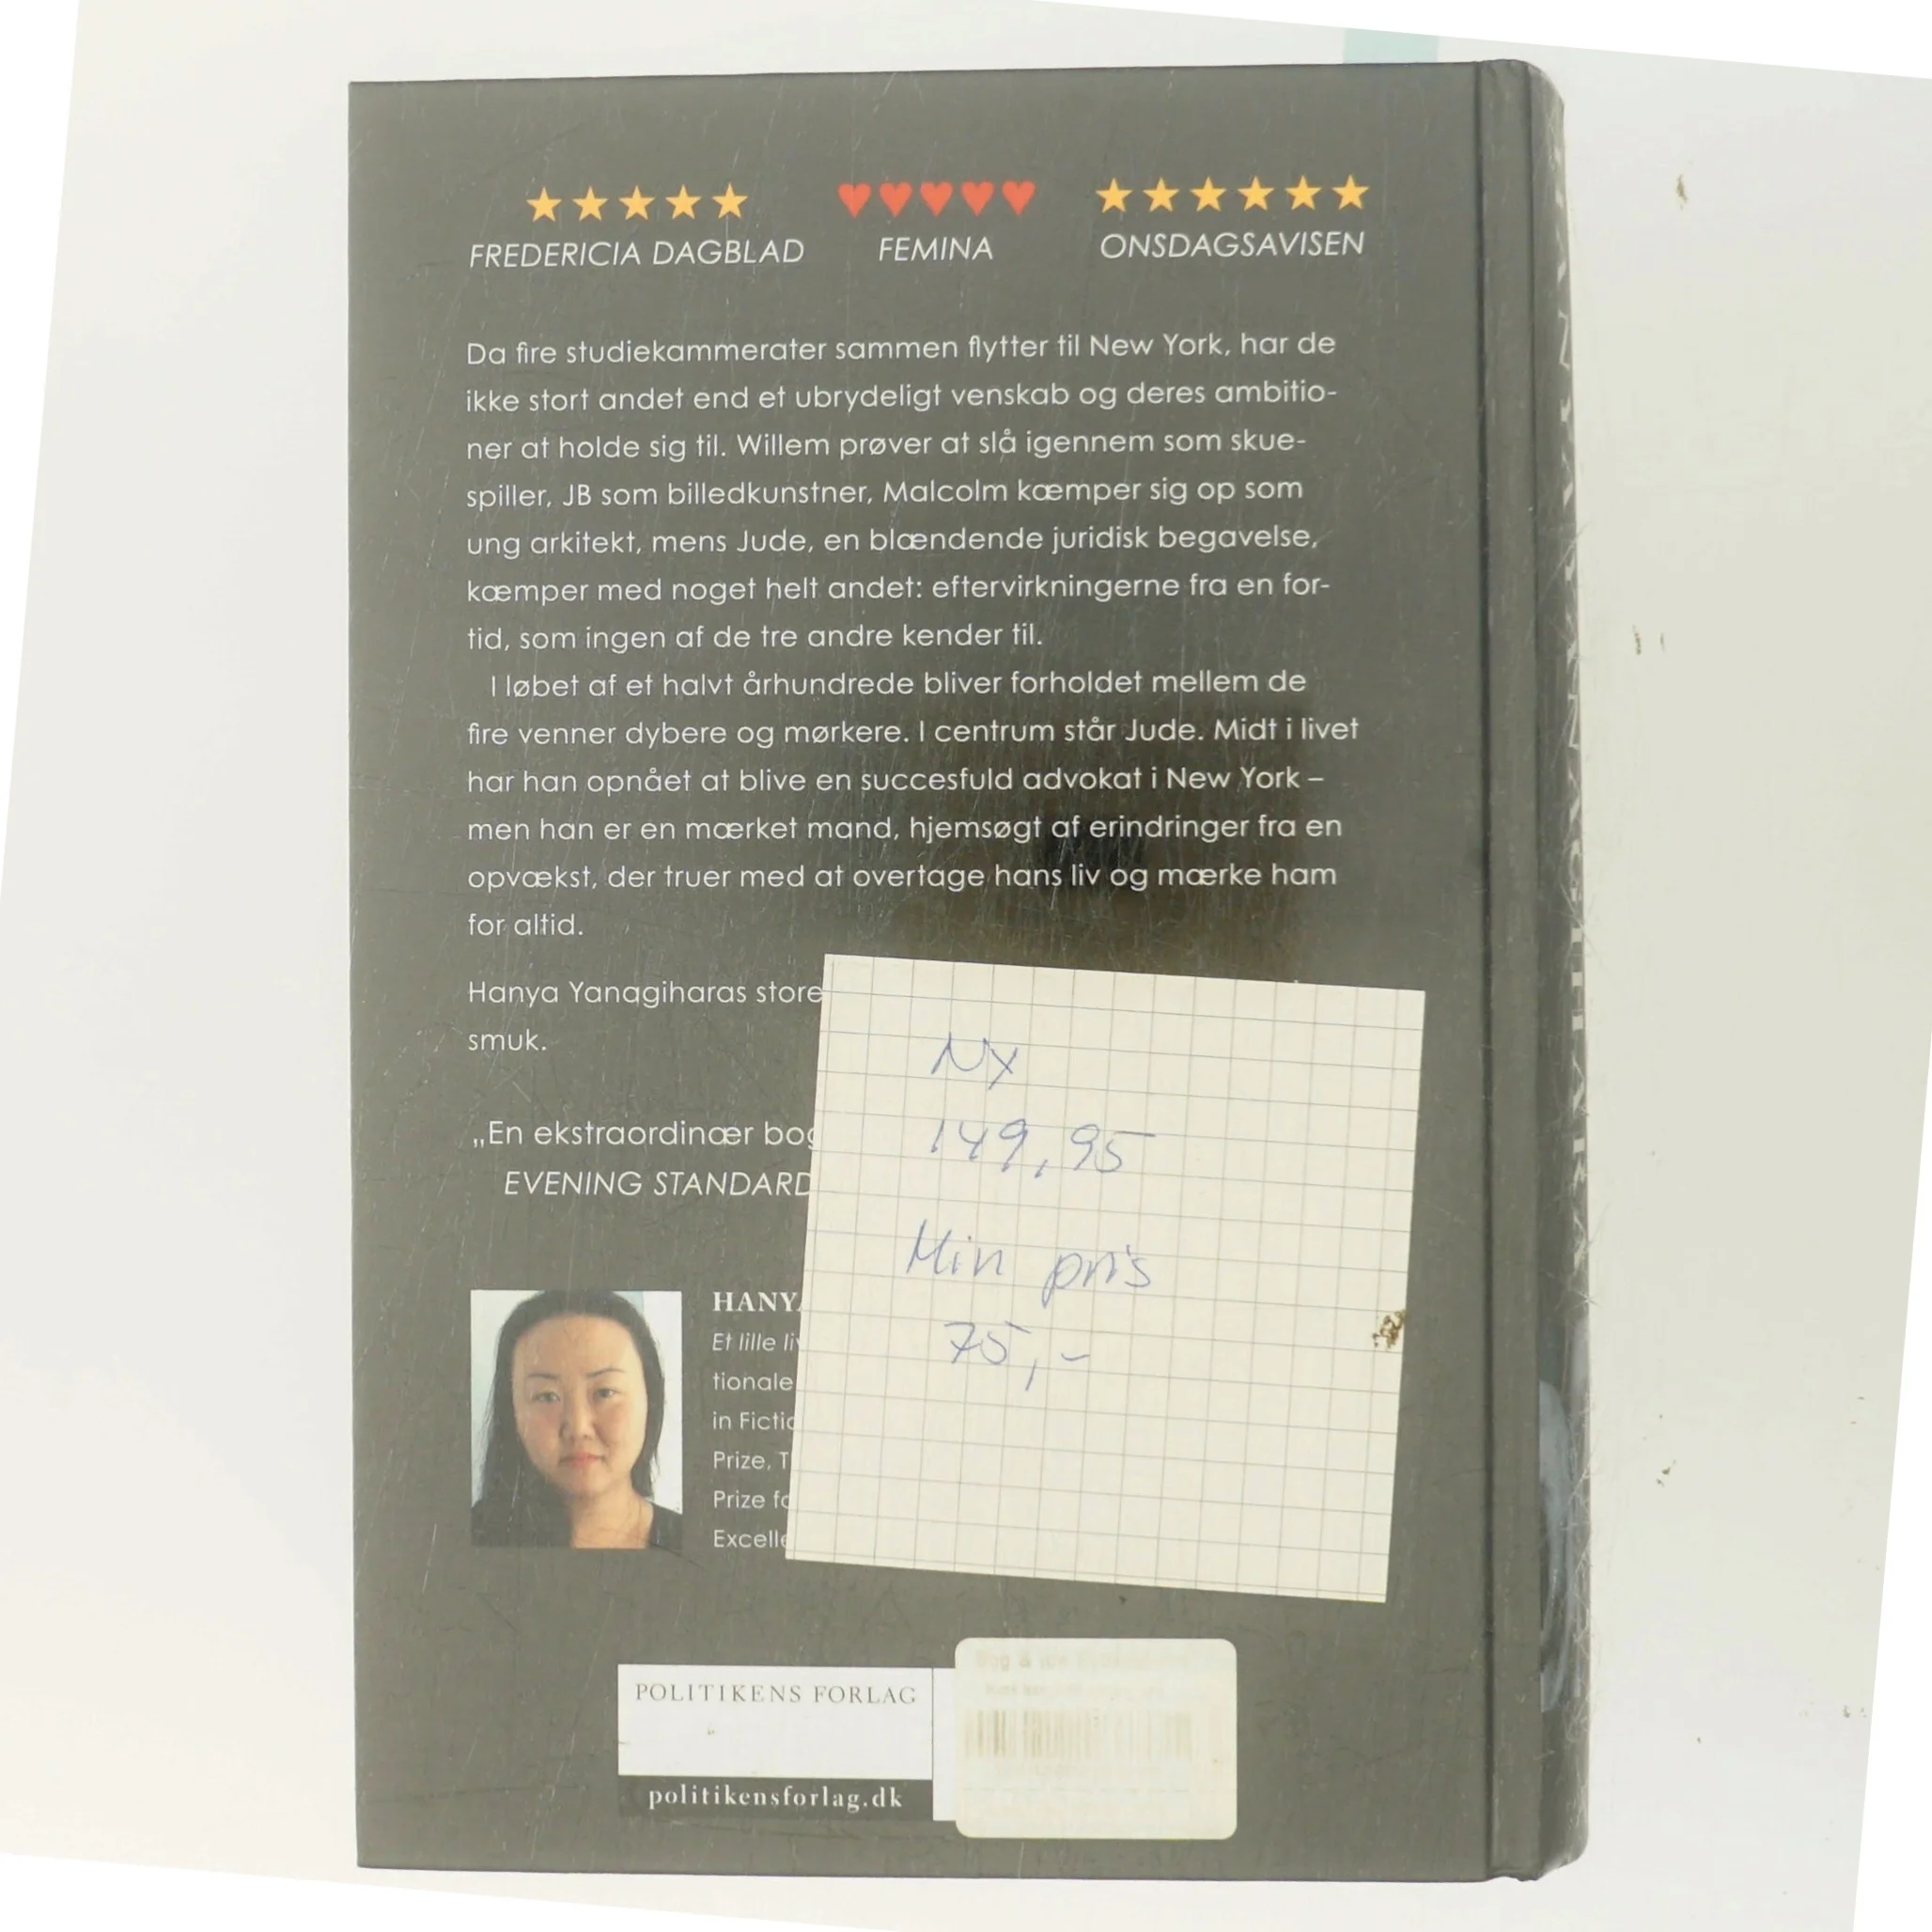 FREDERICIA DAGBLAD
FEMINA
ONSDAGSAVISEN
Da fire studiekammerater sammen flytter til New York, har de
ikke stort andet end et ubrydeligt venskab og deres ambitio-
ner at holde sig til. Willem prøver at slå igennem som skue-
spiller, JB som billedkunstner, Malcolm kæmper sig op som
ung arkitekt, mens Jude, en blændende juridisk begavelse,
kæmper med noget helt andet: eftervirkningerne fra en for-
tid, som ingen af de tre andre kender til.
I løbet af et halvt århundrede bliver forholdet mellem de
fire venner dybere og mørkere. I centrum står Jude. Midt i livet
har han opnået at blive en succesfuld advokat i New York –
men han er en mærket mand, hjemsøgt af erindringer fra en
opvækst, der truer med at overtage hans liv og mærke ham
for altid.
Hanya Yanagiharas store
smuk.
„En ekstraordinær bog
EVENING STANDARD
HANYA
Et lille liv
tionale
in Fictio
Prize, T
Prize fo
Excelle
Ny
149,95
Min pris
75,-
POLITIKENS FORLAG
politikensforlag.dk
HANYA YANAGIHARA